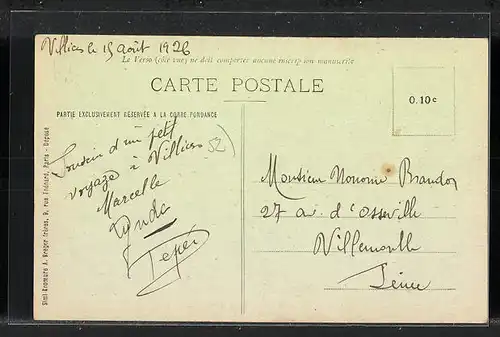 Villiers le 15 août 1926
Le Verso (côté vue) ne doit comporter aucune inscription manuscrite
CARTE POSTALE
0.10 c
PARTIE EXCLUSIVEMENT RÉSERVÉE A LA CORRESPONDANCE
Souvenir d'un petit
voyage à Villiers
52
Marcelle
Monsieur Nonome Brandon
27 av. d'Osseville
Villemomble
Seine
Simi-Bromure A. Breger frères, 9, rue Thénard, Paris - Déposé